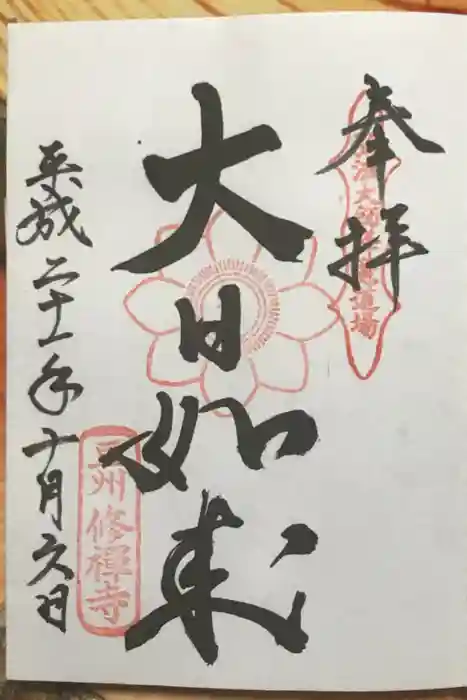 奉拝
大師
道場
大日如来
平成二十一年十月六日
豆州修禪寺